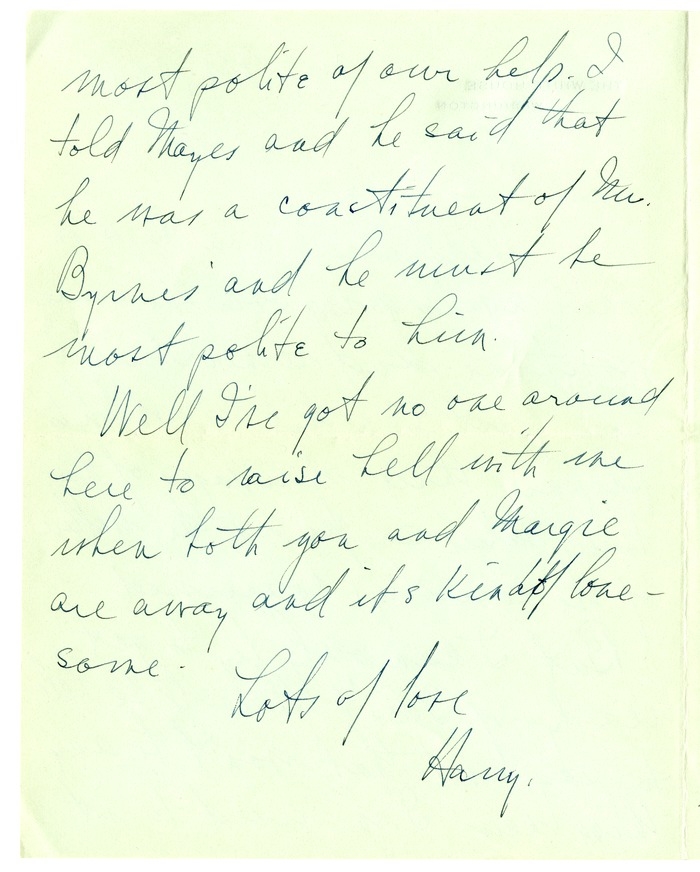 most polite of our help. I
told Mayes and he said that
he was a constituent of Mr.
Byrnes' and he must be
most polite to him.
Well I've got no one around
here to raise hell with me
when both you and Margie
are away and it's kind of lone-
some.
Lots of love
Harry.